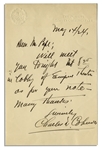 May 14/24.
Dear Mr Pape:
Will meet
you Tonight at 8
in lobby of Empire Theatre
as per your note—
Many thanks.
Sincerely
Charles